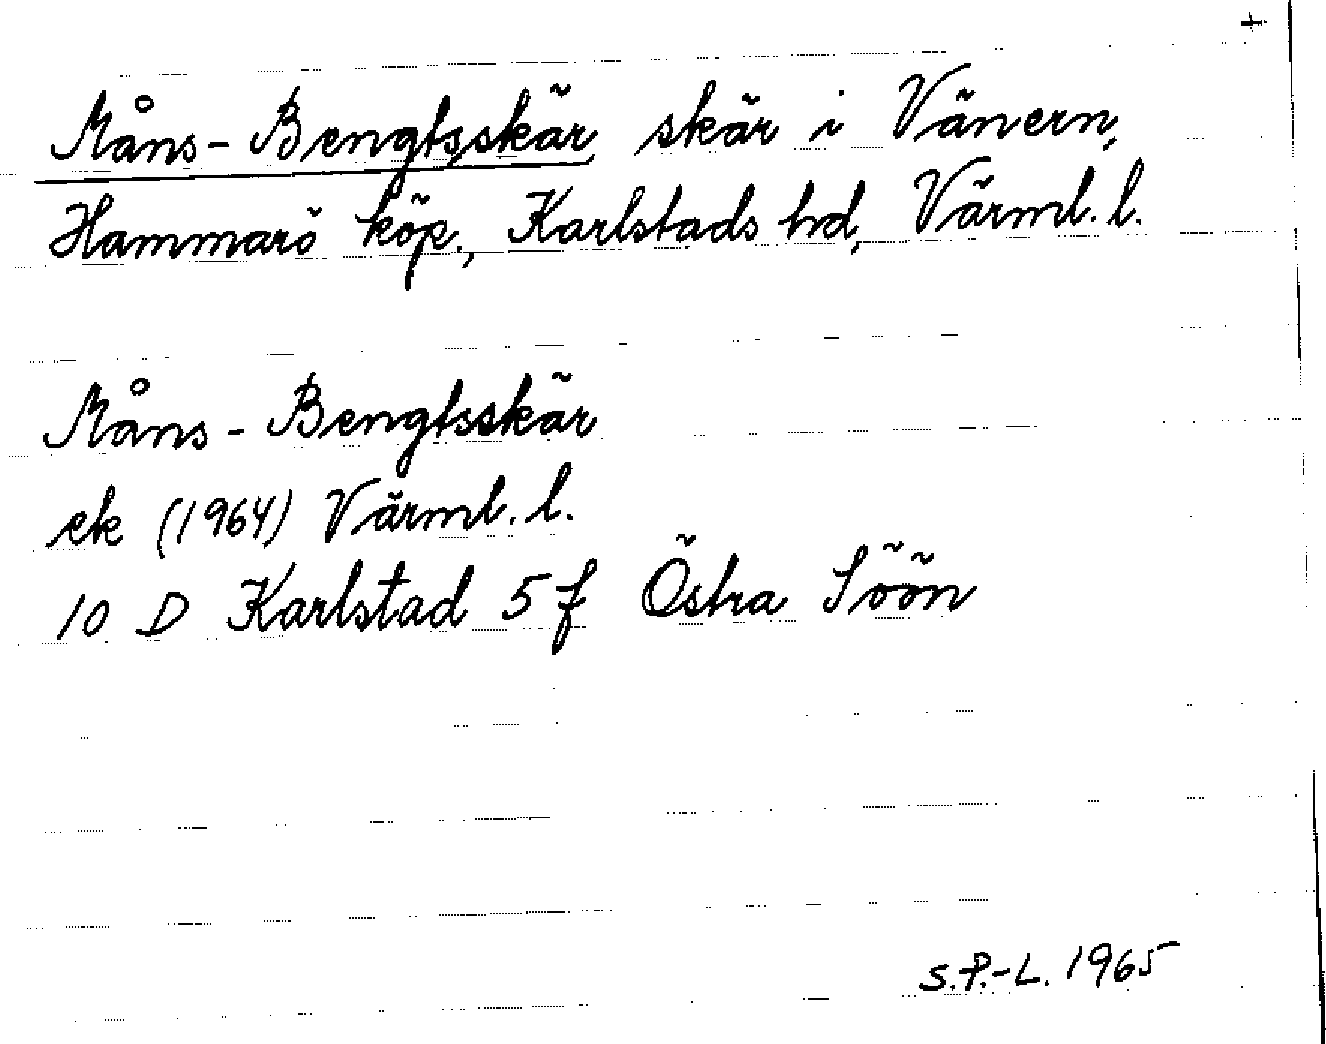 Måns-Bengtsskär, skär i Vänern,
Hammarö köp., Karlstads hd, Värml. l.
Måns-Bengtsskär
ek (1964) Värml. l.
10 D Karlstad 5 f Östra Söön
S.P.-L. 1965